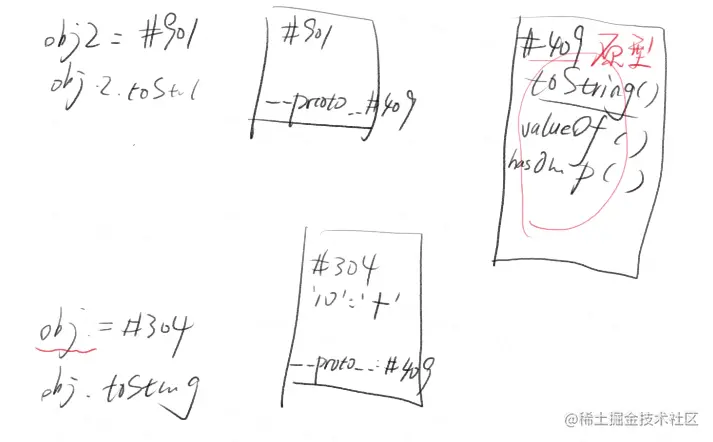 obj2 = #901
obj.2.toSt
#901
__proto__#409
#409 原型
toString()
valueOf()
hasOwnp()
obj = #304
obj.toString
#304
'10':'十'
__proto__:#409
@稀土掘金技术社区